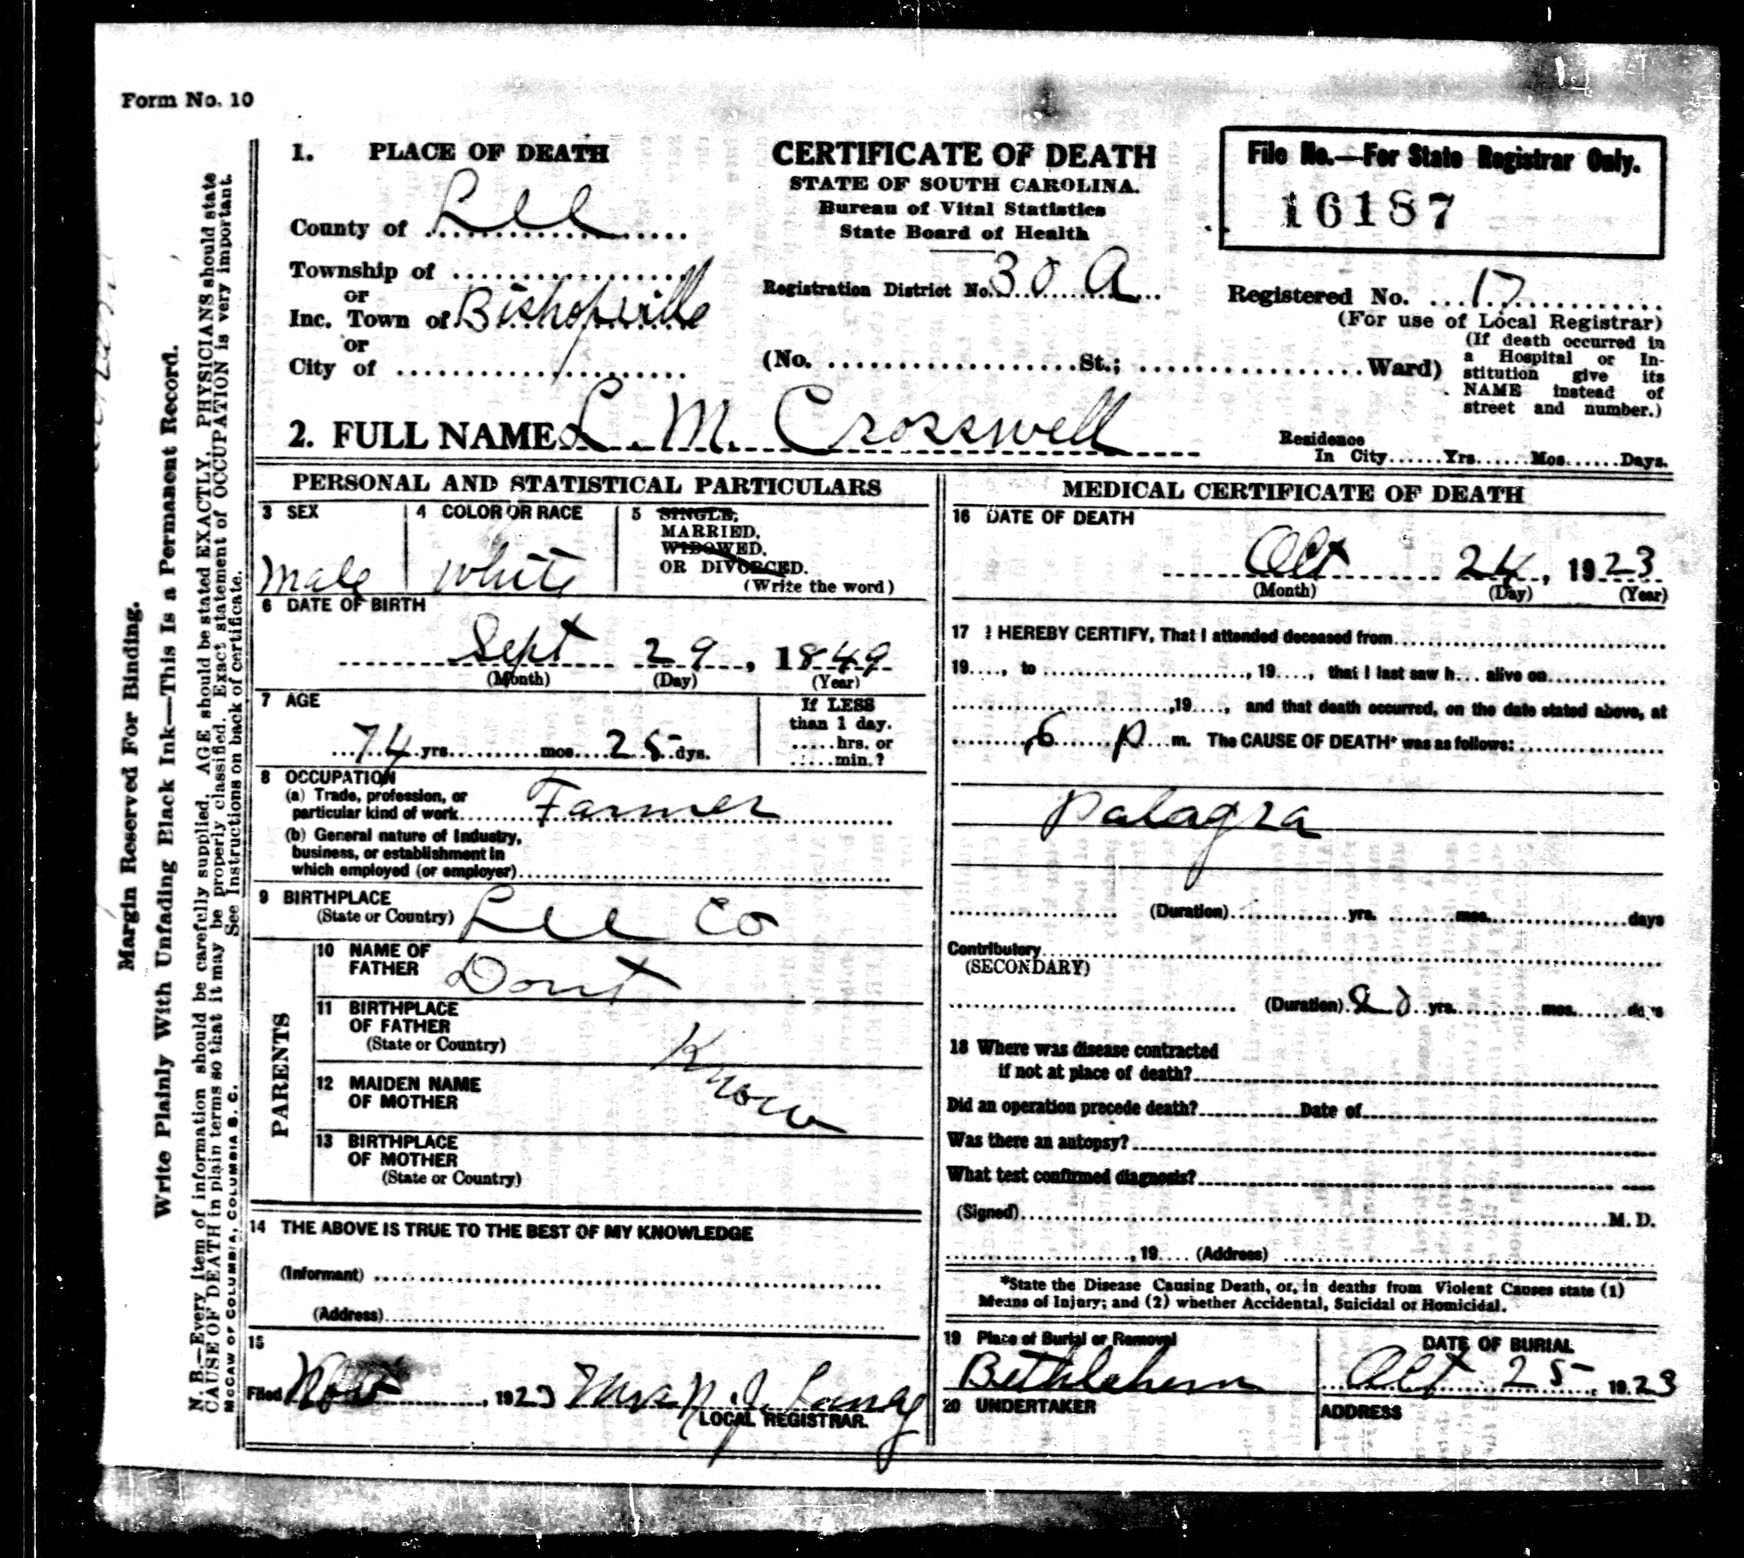 Form No. 10
1. PLACE OF DEATH
County of Lee
Township of
or
Inc. Town of Bishopville
or
City of
CERTIFICATE OF DEATH
STATE OF SOUTH CAROLINA.
Bureau of Vital Statistics
State Board of Health
Registration District No. 30 A
(No. St.; Ward)
File No.—For State Registrar Only.
16187
Registered No. 17
(For use of Local Registrar)
(If death occurred in
a Hospital or In-
stitution give its
NAME instead of
street and number.)
2. FULL NAME L. M. Crosswell
Residence
In City Yrs. Mos. Days.
PERSONAL AND STATISTICAL PARTICULARS
3 SEX
Male
4 COLOR OR RACE
White
5 SINGLE,
MARRIED,
WIDOWED,
OR DIVORCED.
(Write the word)
6 DATE OF BIRTH
Sept 29, 1849
(Month) (Day) (Year)
7 AGE
74 yrs. mos. 25 dys.
If LESS
than 1 day.
hrs. or
min.?
8 OCCUPATION
(a) Trade, profession, or
particular kind of work Farmer
(b) General nature of Industry,
business, or establishment in
which employed (or employer)
9 BIRTHPLACE
(State or Country) Lee Co
PARENTS
10 NAME OF
FATHER Dont
11 BIRTHPLACE
OF FATHER
(State or Country)
Know
12 MAIDEN NAME
OF MOTHER
13 BIRTHPLACE
OF MOTHER
(State or Country)
14 THE ABOVE IS TRUE TO THE BEST OF MY KNOWLEDGE
(Informant)
(Address)
15
Filed , 1923
LOCAL REGISTRAR.
MEDICAL CERTIFICATE OF DEATH
16 DATE OF DEATH
Oct 24, 1923
(Month) (Day) (Year)
17 I HEREBY CERTIFY, That I attended deceased from
19, to , 19, that I last saw h alive on
,19, and that death occurred, on the date stated above, at
6 P m. The CAUSE OF DEATH* was as follows:
Palagra
(Duration) yrs. mos. days
Contributory
(SECONDARY)
(Duration) yrs. mos. days
18 Where was disease contracted
if not at place of death?
Did an operation precede death? Date of
Was there an autopsy?
What test confirmed diagnosis?
(Signed) M. D.
, 19 (Address)
*State the Disease Causing Death, or, in deaths from Violent Causes state (1)
Means of Injury; and (2) whether Accidental, Suicidal or Homicidal.
19 Place of Burial or Removal
Bethlehem
DATE OF BURIAL
Oct 25, 1923
20 UNDERTAKER
ADDRESS
Margin Reserved For Binding.
Write Plainly With Unfading Black Ink—This Is a Permanent Record.
N. B.—Every item of information should be carefully supplied. AGE should be stated EXACTLY. PHYSICIANS should state
CAUSE OF DEATH in plain terms so that it may be properly classified. Exact statement of OCCUPATION is very important.
See Instructions on back of certificate.
McCAW OF COLUMBIA, COLUMBIA S. C.